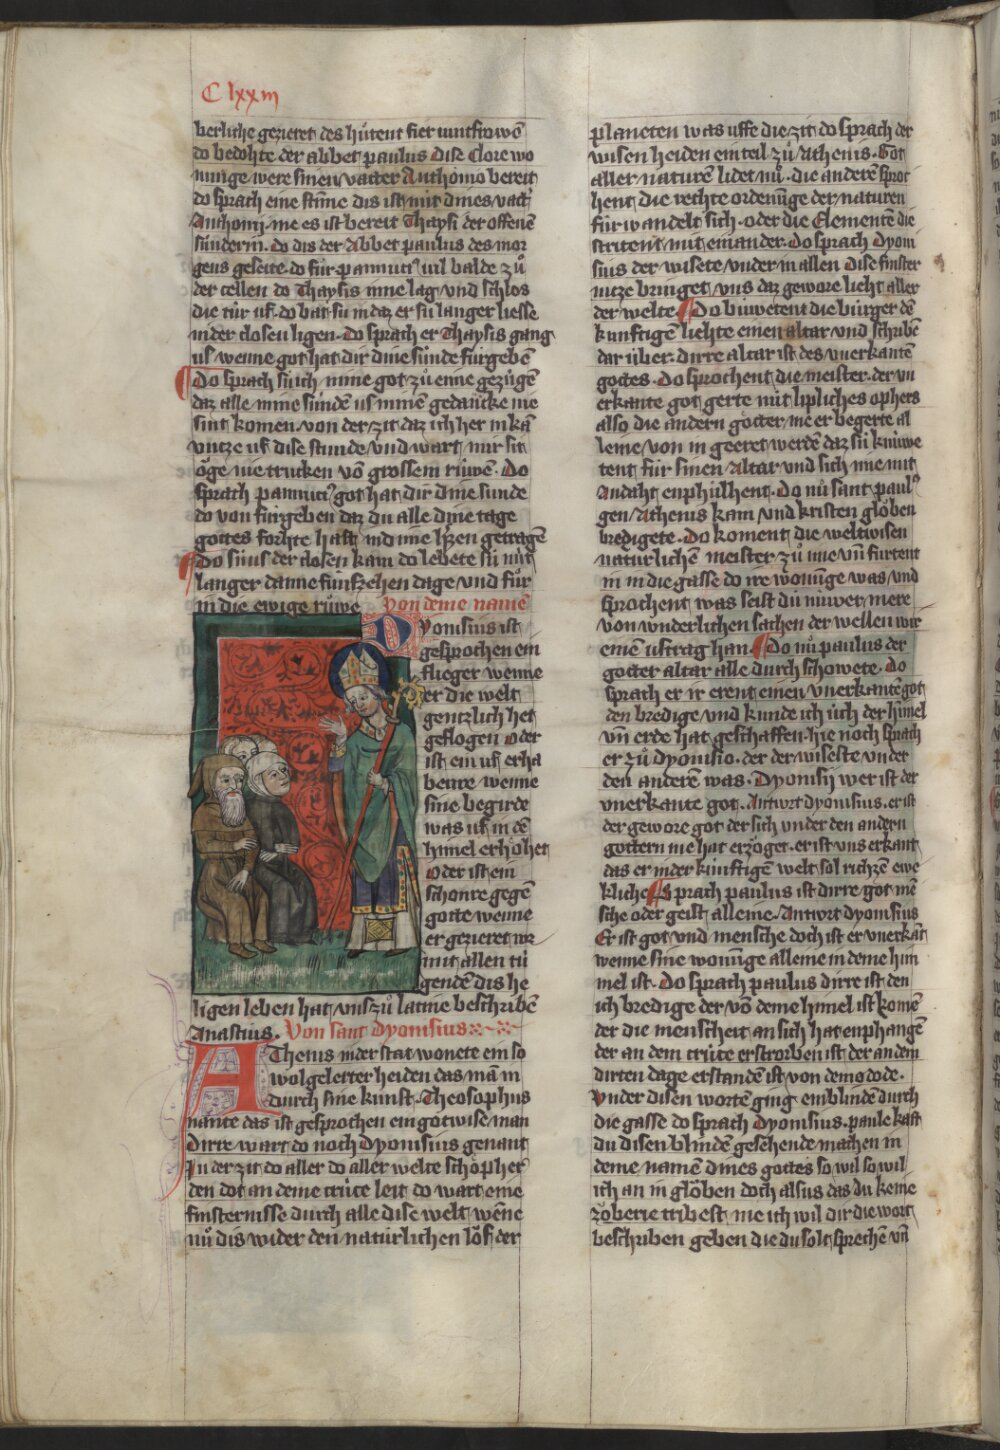 C lxxiii
berliche gezieret des hůtent fier iuntfrowē
do bedohte der abbet paulus Dise Clore wo
nunge were sinen vatter Anthonio bereit
do sprach eine stīme dis ist nit dines vatt̾
Anthonii me es ist bereit Thaysi der offenē
sünderin. do dis der Abbet paulus des mor
gens geseite do für pannuci9 vil balde zů
der cellen do Thaysis inne lag vnd schlos
die tür uf. do bat sü in daz er sü langer liesse
in der closen ligen. do sprach er Thaysis gang
us wenne got hat dir dine sünde fürgebē
Do sprach sü ich nime got zů eime gezügē
daz alle mine sündē us minē gedancke nie
sint komen von der zit daz ich her in kā
vntze uf dise stunde vnd wart mir sit
öge nie trucken vō grossem rüwē. Do
sprach pannuci9 got hat dir dine sunde
do von fürgeben daz du alle dine tage
gottes forhte hast in dime hſzen getragē
Do süus der closen kam do lebete sü nüt
langer danne fünfzehen dage vnd für
in die ewige růwe Von deme namē
Dyonisius ist
gesprochen ein
flieger wenne
er die welt
gentzlich het
geflogen oder
ist ein uf erha
bener wenne
sine begirde
was uf in dē
himel erhöhet
oder ist ein
schonre gegē
gotte wenne
er gezieret wz
mit allen tu
gendē dis he
ligen leben hat vns zů latine beschribē
Anastius. Von sant dyonisius
AThenis in der stat wonete ein so
wol geletter heiden das mā in
durch sine kunst. Theosophus
nante das ist gesprochen ein gotwise man
Dirre wart do noch Dyonisius genant
In der zit do aller do aller welte schöpher
den dot an deme crůce leit do wart eine
finsternisse durch alle dise welt wēne
nů dis wider den natürlichen löf der
planeten was uffe die zit do sprach der
wisen heiden ein teil zů Athenis. Got
aller naturē lidet nů. die anderē sproc
hent die rechte ordenūge der naturen
für wandelt sich. oder die Elementē die
stritent mit einander. Do sprach Dyoni
sius der wisete vnder in allen Dise finster
nitze bringet vns daz gewore licht aller
der welte Do buwetent die bürger dē
kunftigen liehte einen altar vnd schribē
dar über. dirre altar ist des vnerkantē
gottes. Do sprochent die meister. der vn
erkante got gerte nüt lipliches ophers
also die andern götter me er begerte al
leine von in geeret werdē daz sü knüwe
tent für sinen altar vnd sich ime mit
andaht enphülhent. Do nů sant paul9
gen Athenis kam vnd kristen glöben
bredigete. do koment die weltwisen
natürlichen meister zů ime vn̄ fürtent
in in die gasse do ire wonūge was vnd
sprochent was seist dü nüwer mere
von wnderlichen sachen der wellen wir
einē ustrag han. Do nů paulus der
gotter altar alle durch schowete. do
sprach er ir erent einen vnerkantē got
den bredige vnd kunde ich üch der himel
vn̄ erde hat geschaffen. hie noch sprach
er zů dyonisio. der der wiseste vnder
den anderē was. Dyonisii wer ist der
vnerkante got. Antwrt dyonisius. er ist
der gewore got der sich vnder den andern
gottern nie hat erzöget. er ist vns erkant
das er in der künftigē welt sol richzē ewe
kliche Sprach paulus ist dirre got mē
sche oder geist alleine. Antwrt dyonisius
Er ist got vnd mensche doch ist er vnerkāt
wenne sine wonūge alleine in deme him
mel ist. Do sprach paulus dirre ist den
ich bredige der vō deme himel ist komē
der die menscheit an sich hat enphangē
der an dem crüce erstrorben ist der an dem
dirten dage erstandē ist von demo dode.
Vnder disen wortē ging ein blindē durch
die gasse do sprach dyonisius. paule kast
du disen blindē gesehende machen in
deme namē dines gottes so wil so wil
ich an in glöben doch alsus das du keine
zöberie tribest. me ich wil dir die wort
beschriben geben die du solt sprechē vn̄